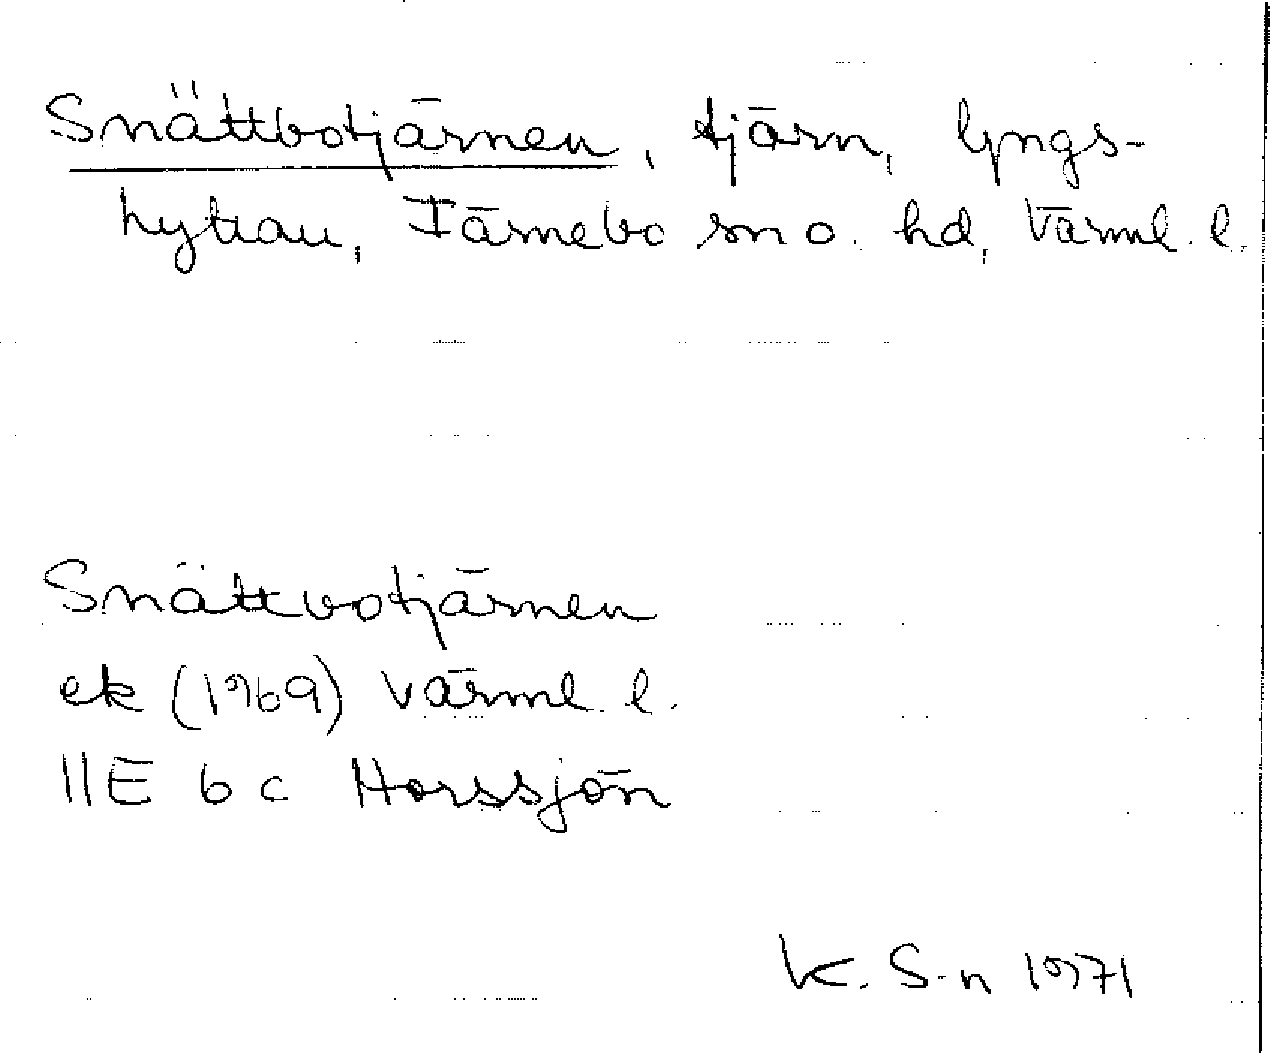 Snättbotjärnen, tjärn, lyngs-
hyttan, Färnebo sn o. hd, Värml. l.
Snättbotjärnen
ek (1969) Värml. l.
11E 6c Horssjön
K. S-n 1971